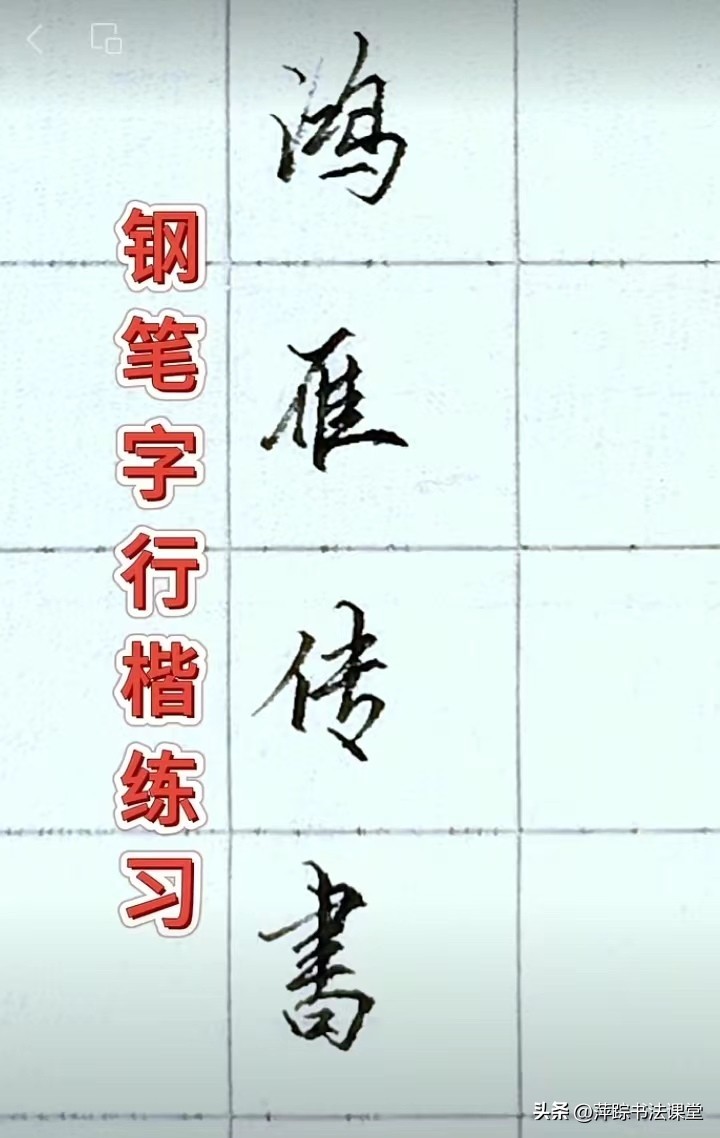 钢笔字行楷练习
鸿雁传書
头条 @萍踪书法课堂